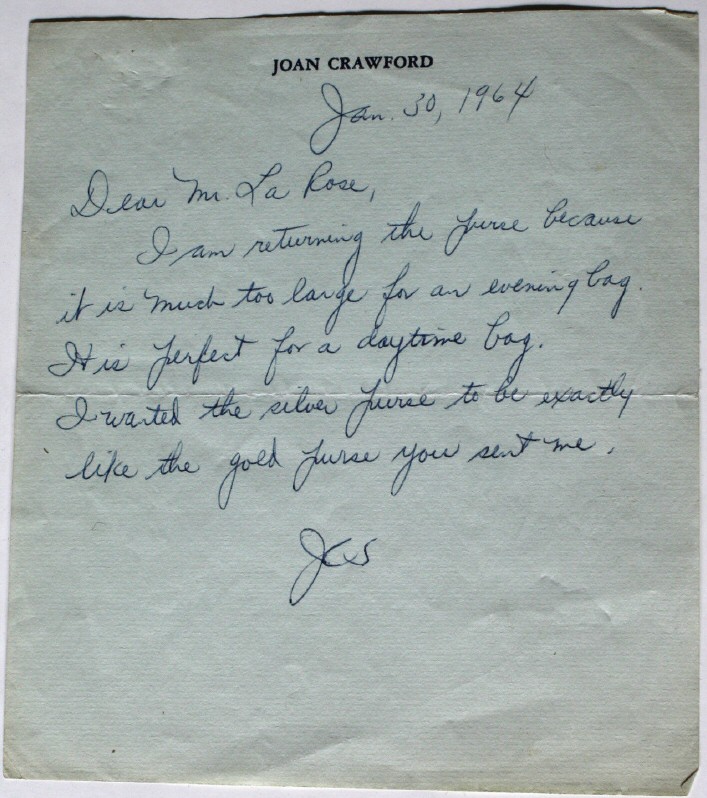 JOAN CRAWFORD
Jan. 30, 1964
Dear Mr. La Rose,
I am returning the purse because
it is much too large for an evening bag.
It is perfect for a daytime bag.
I wanted the silver purse to be exactly
like the gold purse you sent me.
JCS